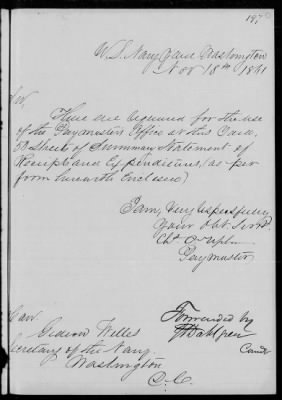 197
U.S. Navy Yard Washington
Nov 18th 1861
Sir
There are required for the use
of the Paymasters Office at this Yard,
Sheets of Summary Statement of
Receipts and Expenditures, (as per
form herewith Enclosed)
I am, Very respectfully
Your Obt. Servt.
Paymaster
Hon.
Gideon Welles
Secretary of the Navy
Washington
D.C.
Forwarded by
Dahlgren
Comdt